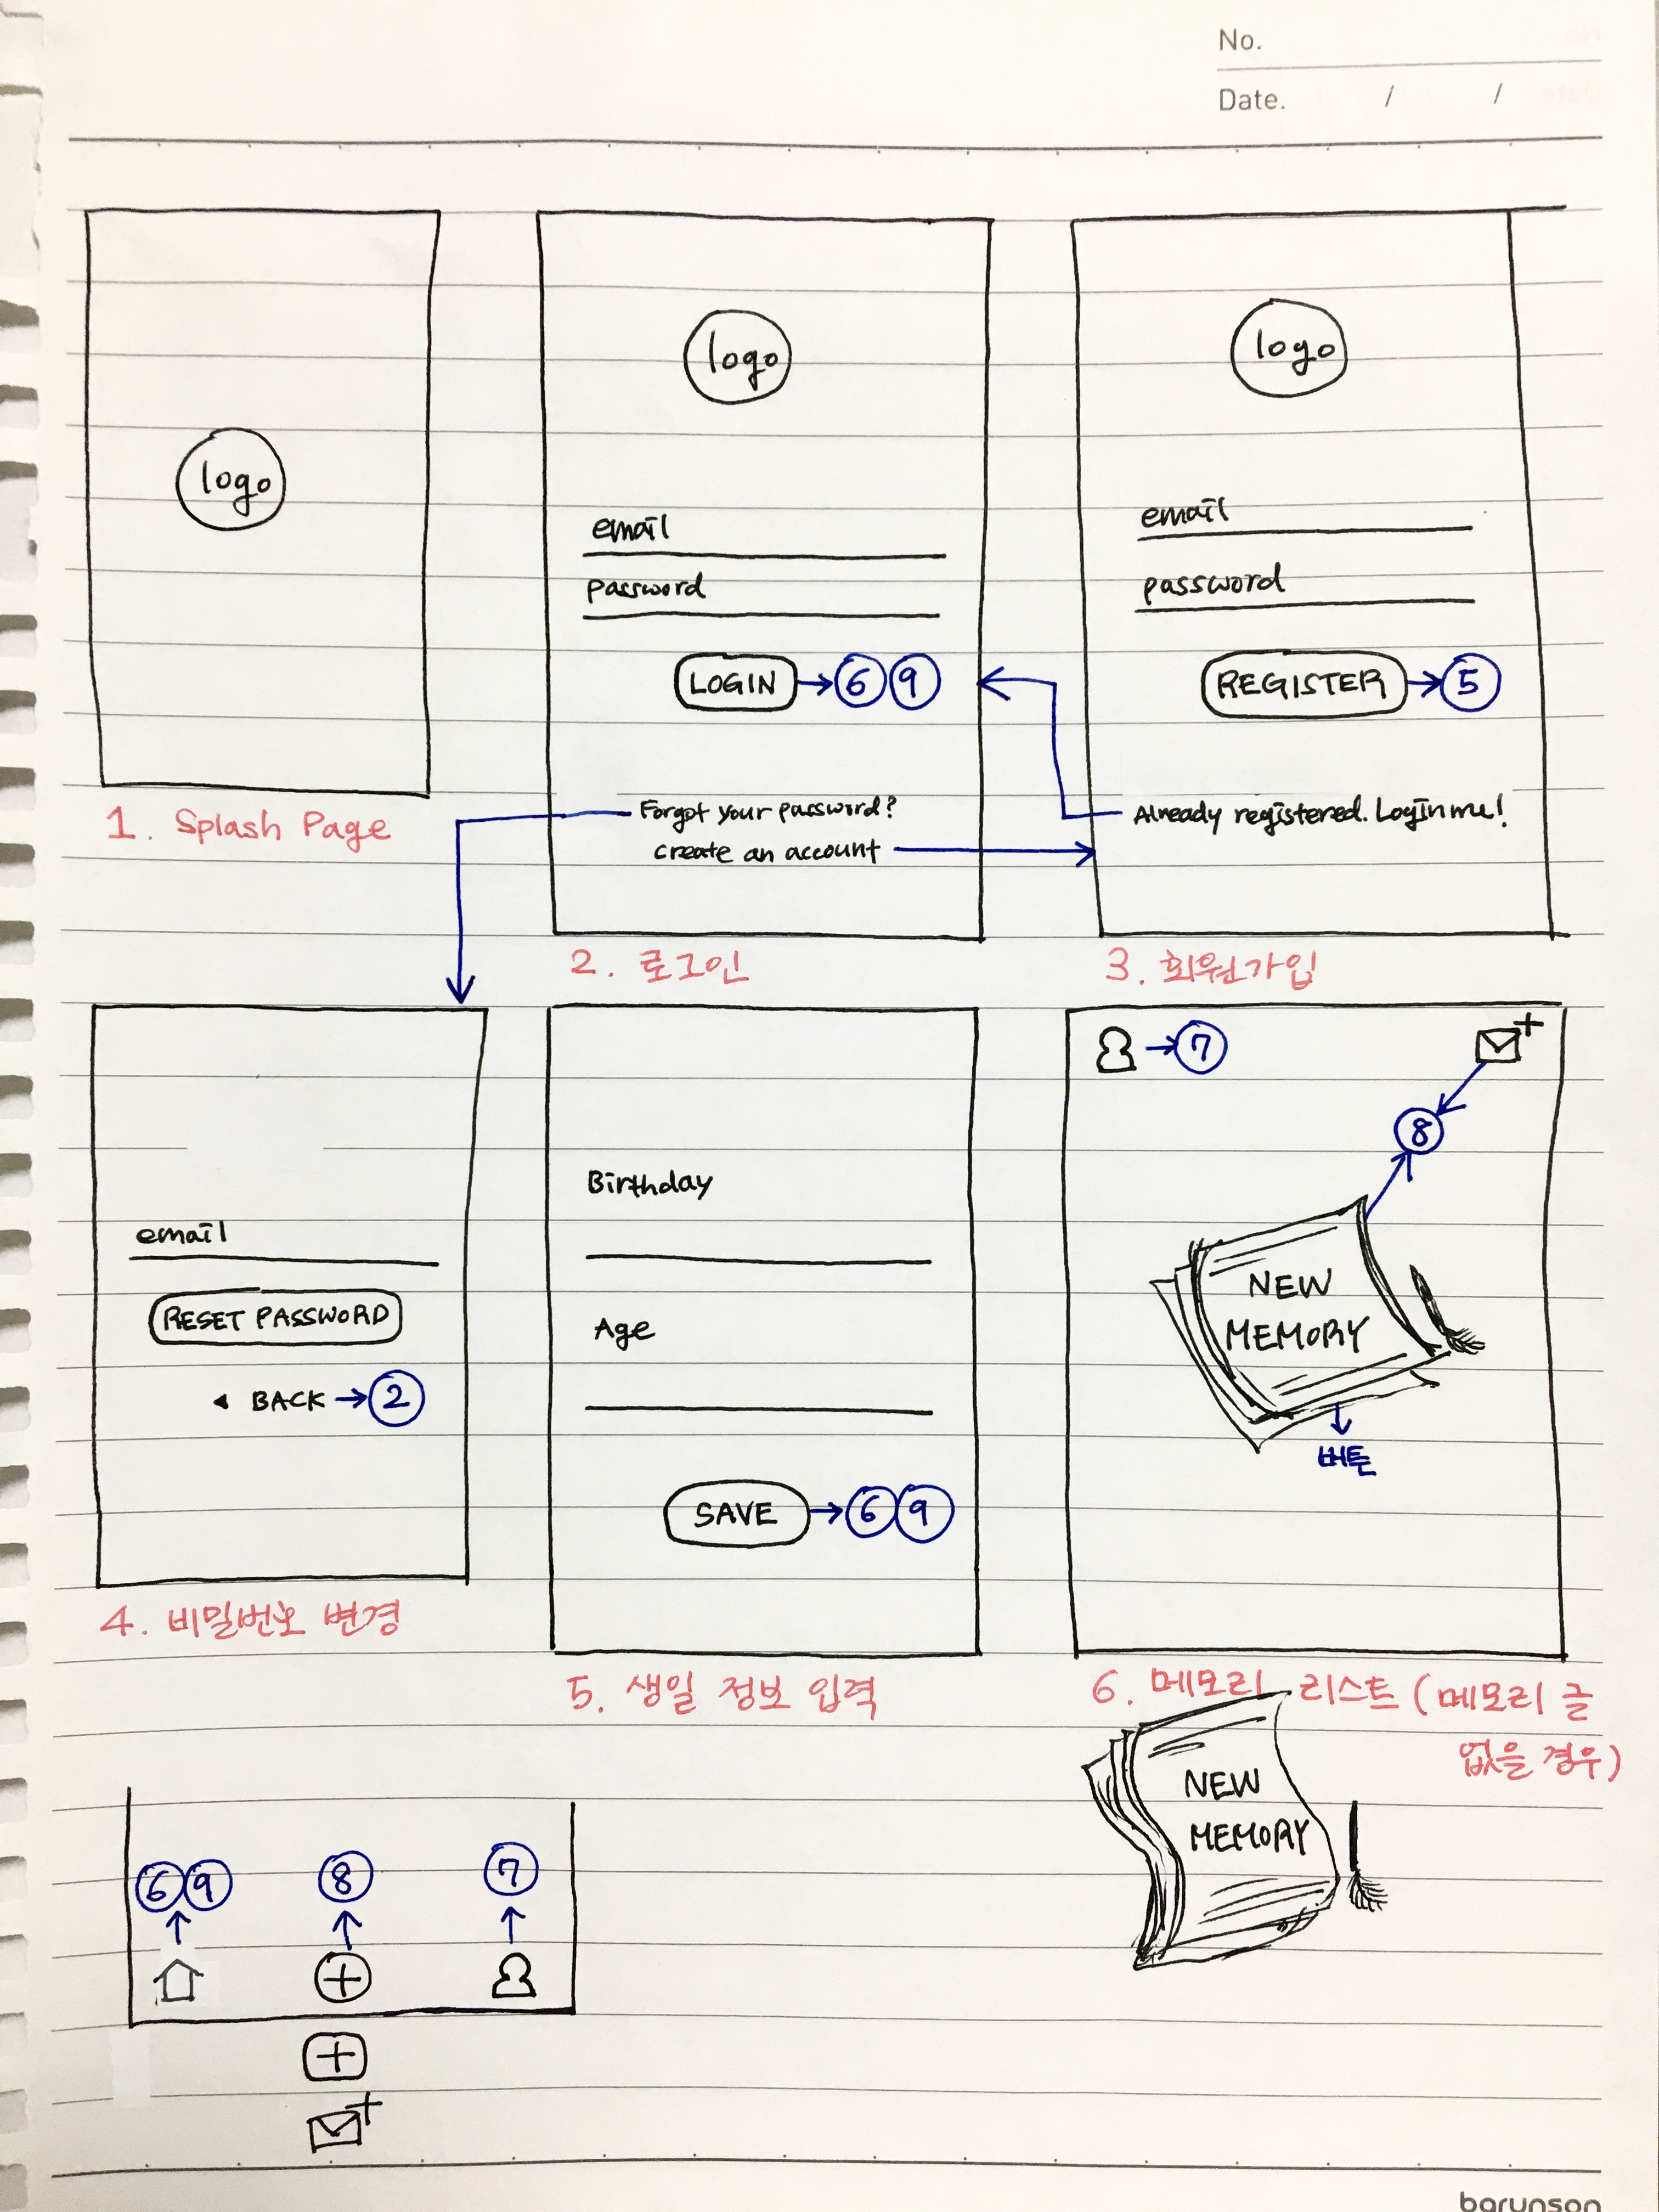 No.
Date. / /
logo
1. Splash Page
logo
email
password
LOGIN → 6 9
Forgot your password?
create an account
2. 로그인
logo
email
password
REGISTER → 5
Already registered. Login me!
3. 회원가입
email
RESET PASSWORD
◀ BACK → 2
4. 비밀번호 변경
Birthday
Age
SAVE → 6 9
5. 생일 정보 입력
→ 7
8
NEW
MEMORY
버튼
6. 메모리 리스트 (메모리 글
없을 경우)
NEW
MEMORY
6 9 8 7
barunson